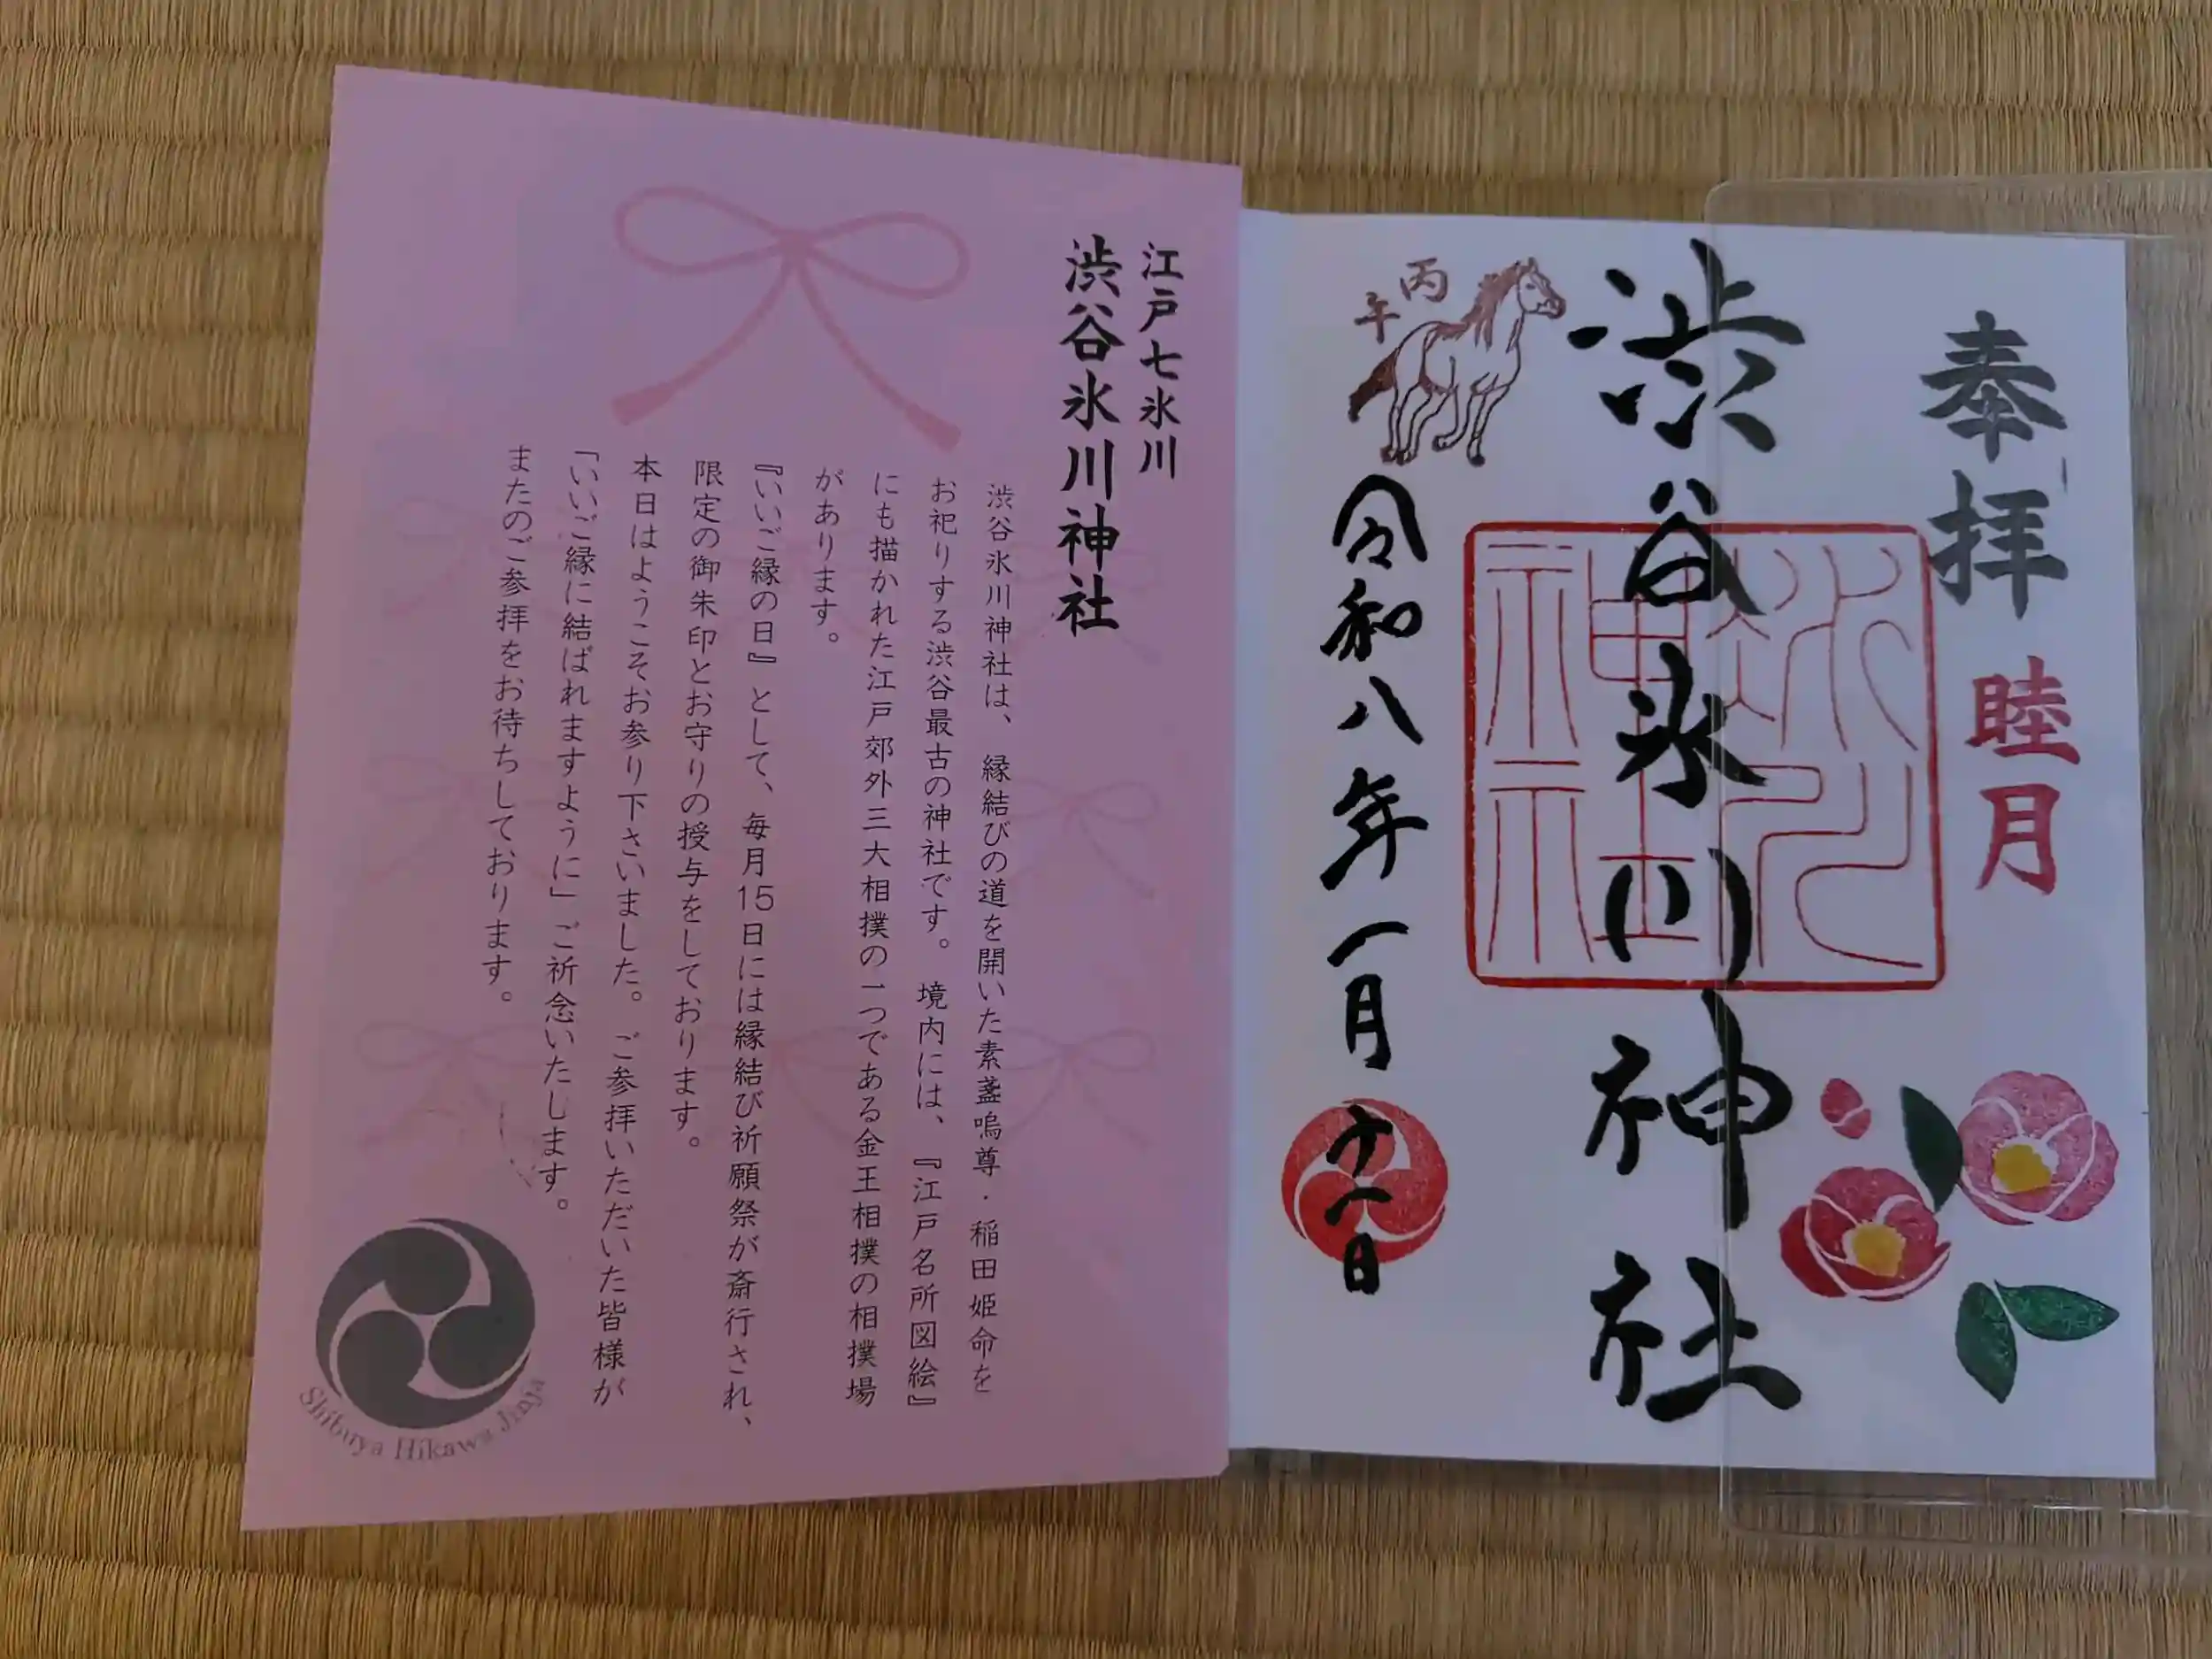 奉拝
睦月
渋谷氷川神社
氷川神社
丙午
令和八年一月
日
江戸七氷川
渋谷氷川神社
渋谷氷川神社は、縁結びの道を開いた素盞嗚尊・稲田姫命を
お祀りする渋谷最古の神社です。境内には、『江戸名所図絵』
にも描かれた江戸郊外三大相撲の一つである金王相撲の相撲場
があります。
『いいご縁の日』として、毎月15日には縁結び祈願祭が斎行され、
限定の御朱印とお守りの授与をしております。
本日はようこそお参り下さいました。ご参拝いただいた皆様が
「いいご縁に結ばれますように」ご祈念いたします。
またのご参拝をお待ちしております。
Shibuya Hikawa Jinja